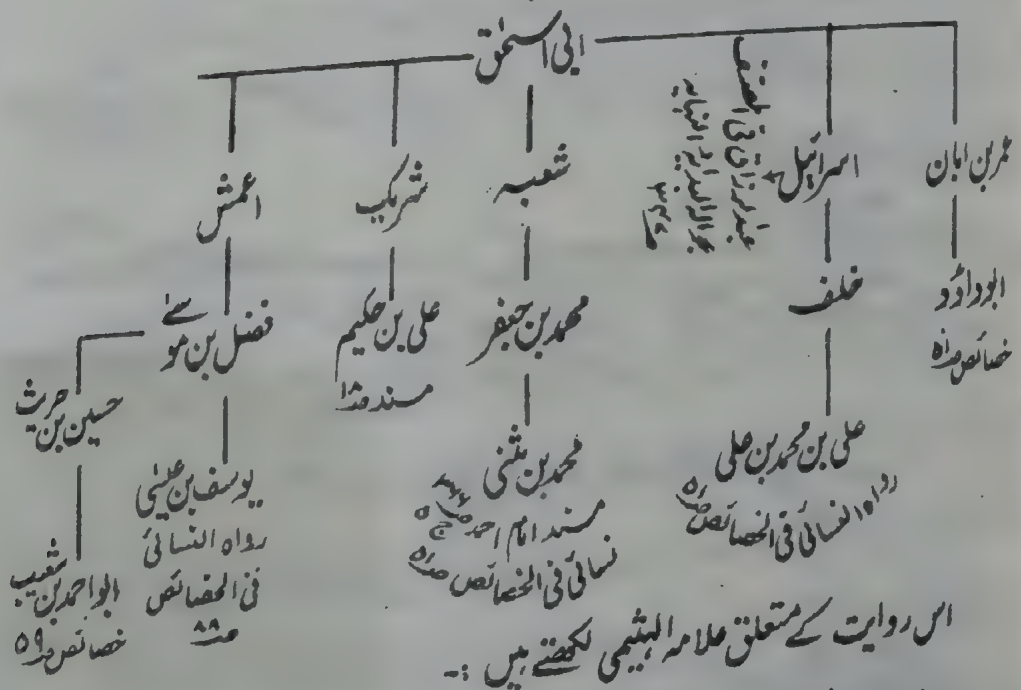 ابی اسحٰق
عمر بن ابان
ابو داؤد
خصائص صا۵
اسرائیل
عبدالرزاق فی المصنف
بحوالہ البدایہ النہایہ
خلف
علی بن محمد بن علی
رواہ النسائی فی الخصائص صا۵
شعبہ
محمد بن جعفر
محمد بن مثنی
مسند امام احمد
نسائی فی الخصائص صا۵
شریک
علی بن حکیم
مسند صا۱۸
اعمش
فضل بن موسے
یوسف بن عیسٰی
رواہ النسائی
فی الخصائص
ص۸۸
حسین بن حریث
ابو احمد بن شعیب
خصائص ص۵۹
اس روایت کے متعلق علامہ الہیثمی لکھتے ہیں :-